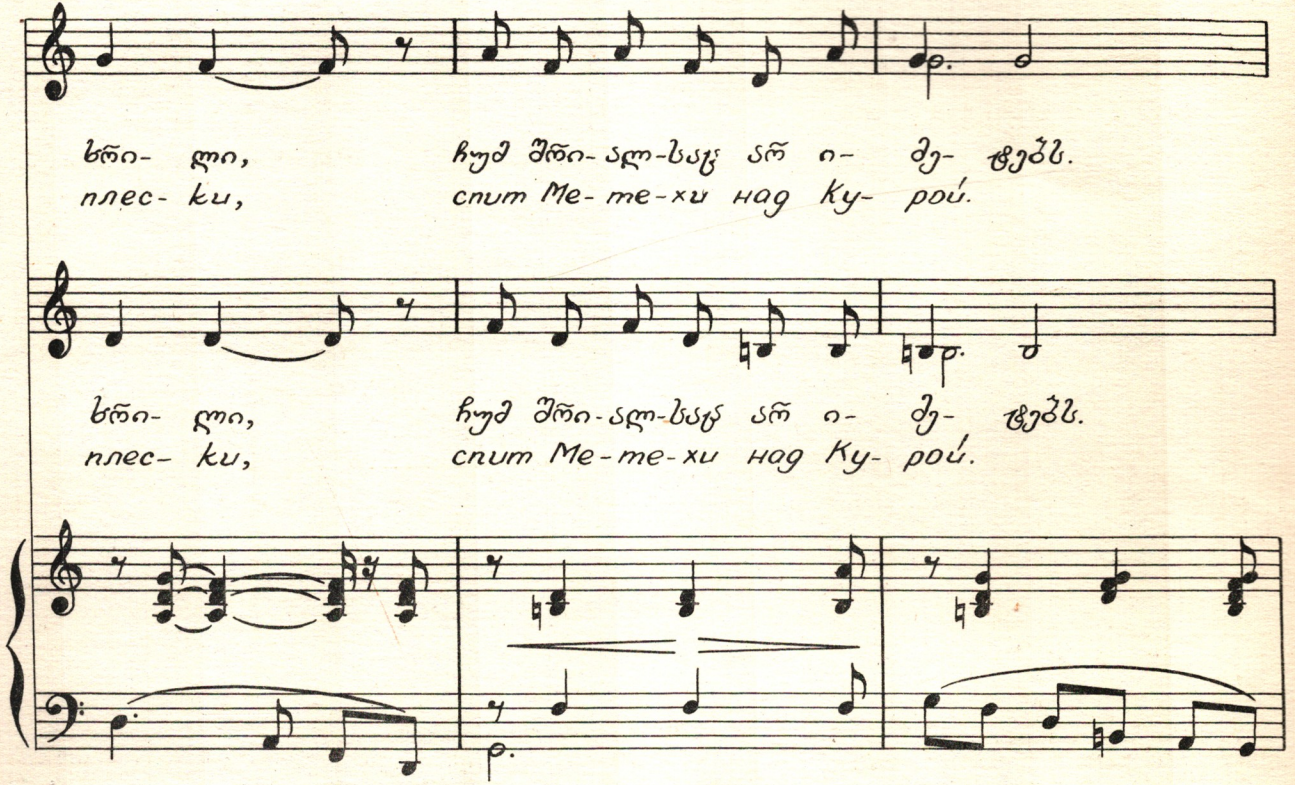 ხრი- ლი, ჩუმ შრი- ალ-საც არ ი- მე- ტებს.
плес- ки, спит Ме- те-хи над Ку- рой.
ხრი- ლი, ჩუმ შრი-ალ-საც არ ი- მე- ტებს.
плес- ки, спит Ме-те-хи над Ку- рой.